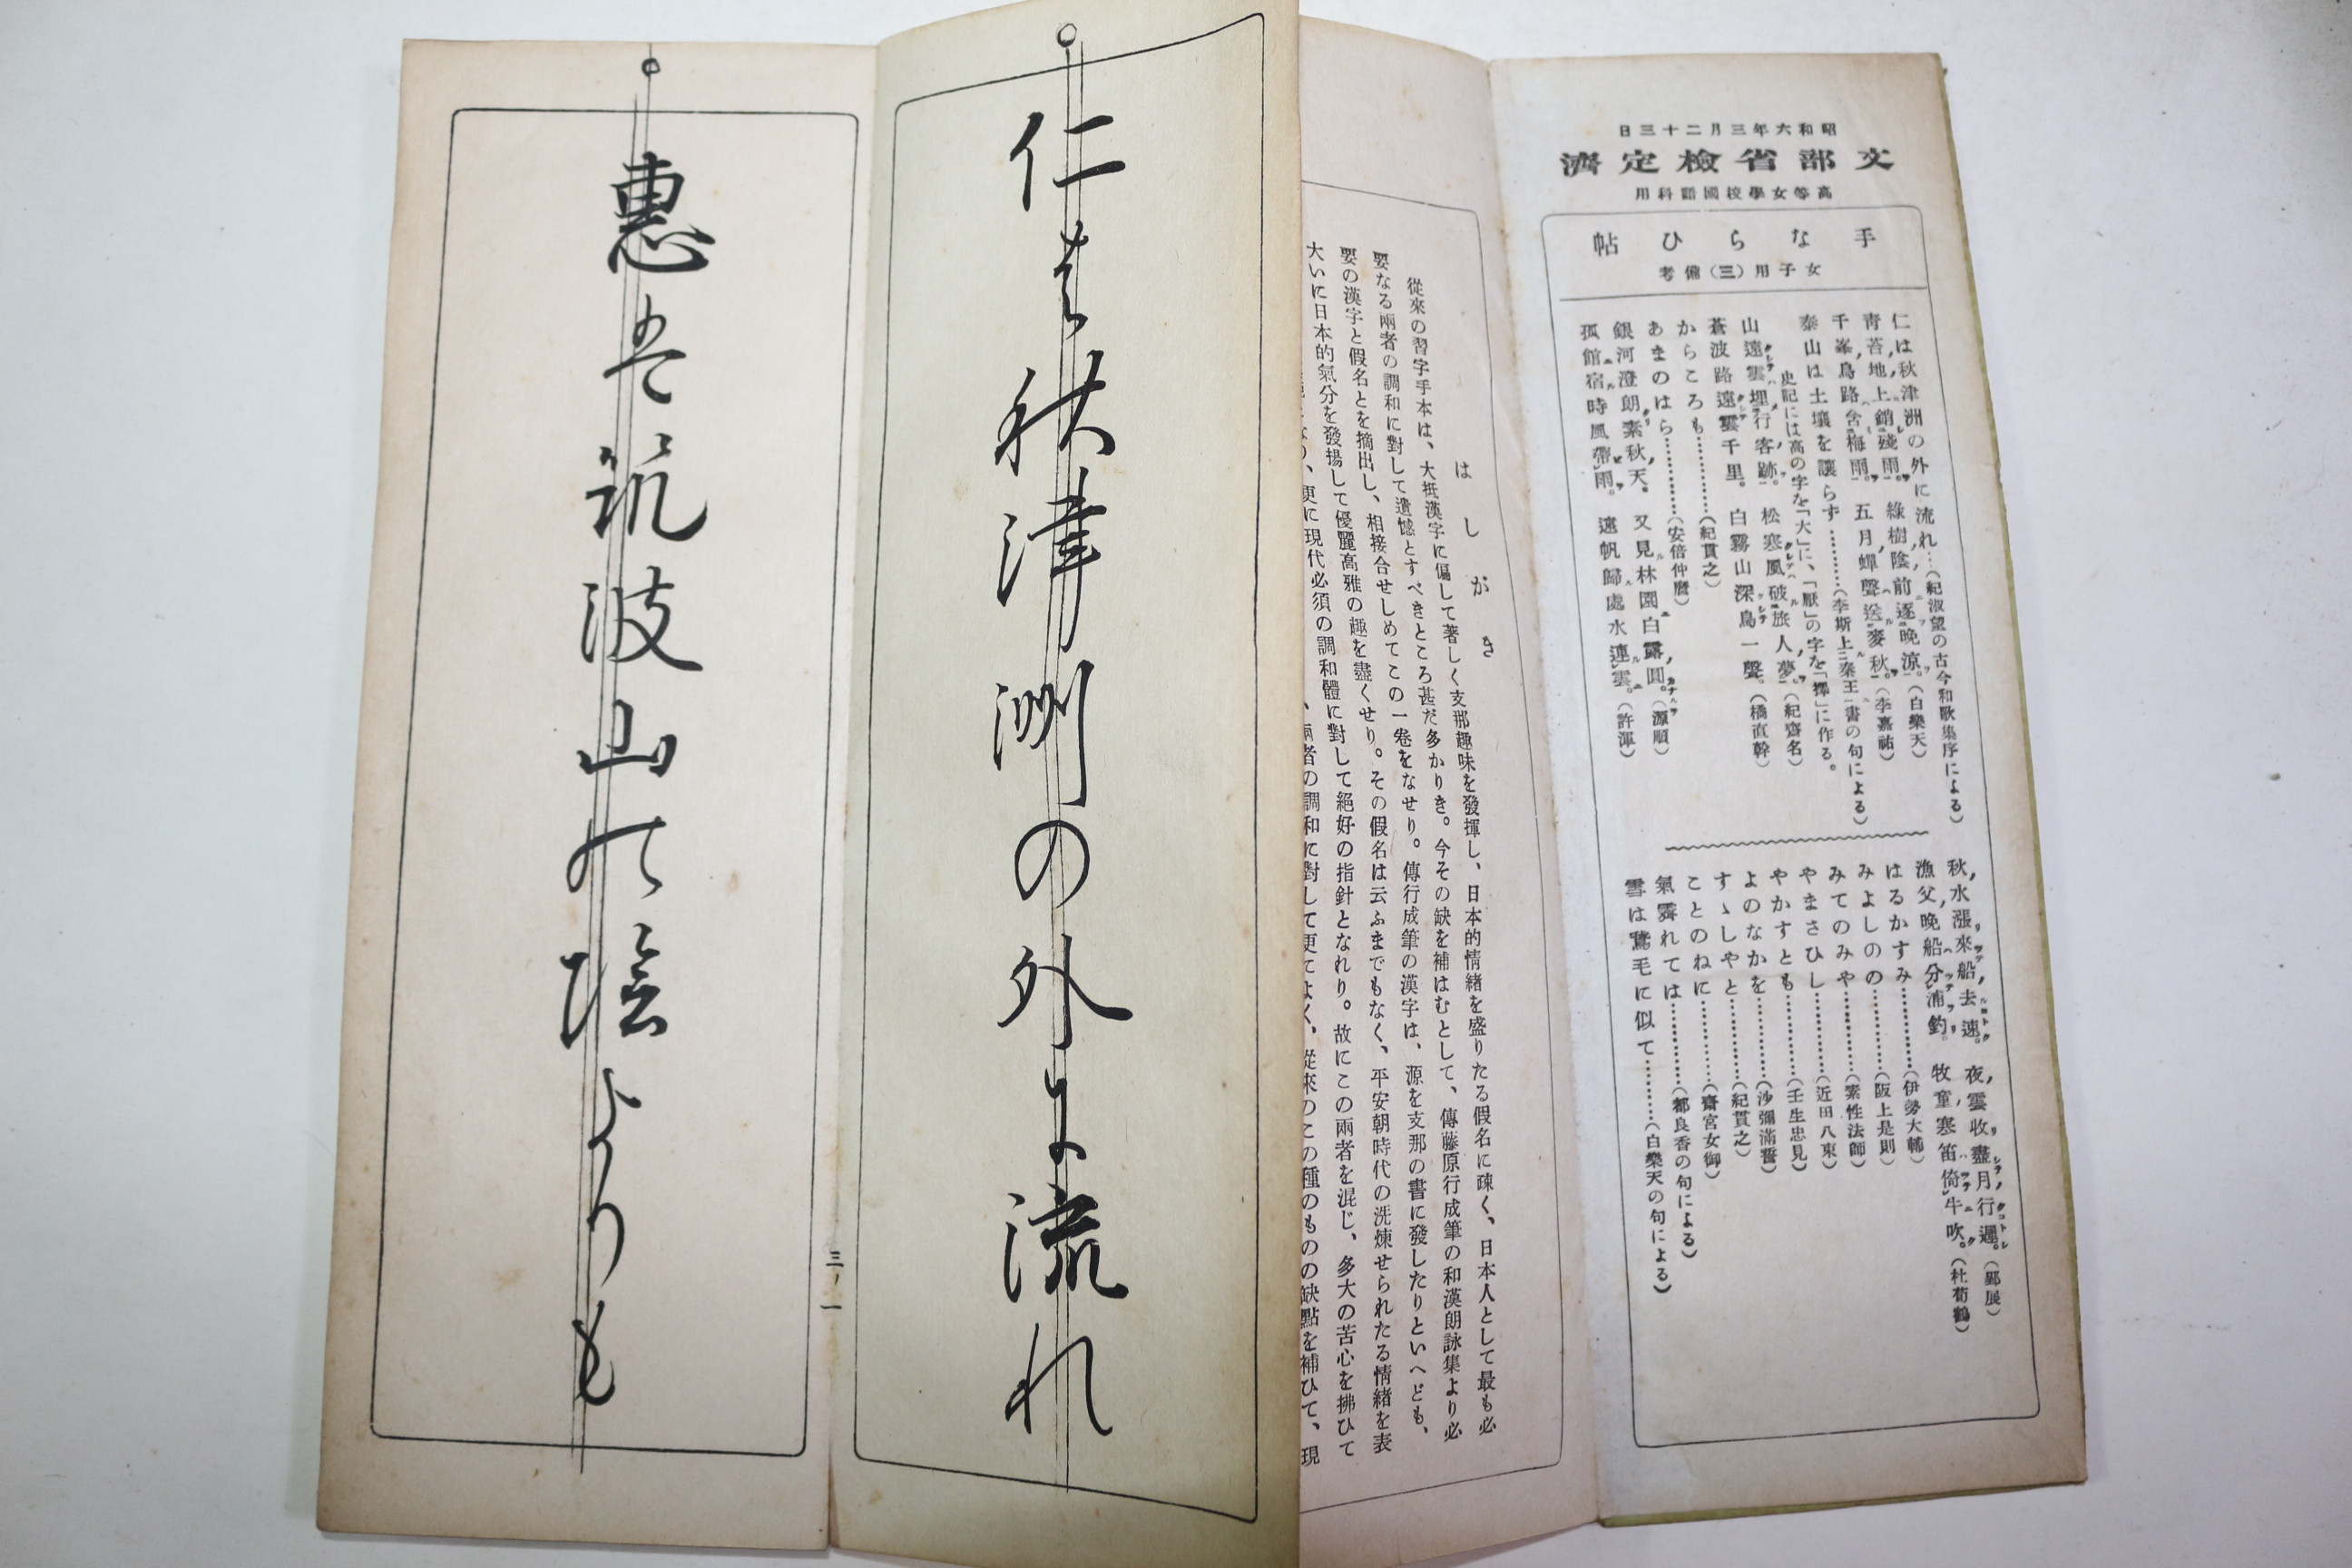 昭和六年三月二十三日
文部省檢定濟
高等女學校國語科用
手ならひ帖
女子用(三)備考
仁は秋津洲の外に流れ…(紀淑望の古今和歌集序による)
青苔地上銷殘雨。綠樹陰前逐晚凉。(白樂天)
千峯鳥路含梅雨。五月蟬聲送麥秋。(李嘉祐)
泰山は土壤を讓らず…………(李斯上秦王書の句による)
史記には高の字を「大」に、「厭」の字を「擇」に作る。
山遠雲埋行客跡。松寒風破旅人夢。(紀齋名)
蒼波路遠雲千里。白霧山深鳥一聲。(橘直幹)
からころも…………(紀貫之)
あまのはら…………(安倍仲麿)
銀河澄朗素秋天。又見林園白露圓。(源順)
孤館宿時風帶雨。遠帆歸處水連雲。(許渾)
秋水漲來船去速。夜雲收盡月行遲。(郢展)
漁父晚船分浦釣。牧童寒笛倚牛吹。(杜荀鶴)
はるかすみ…………(伊勢大輔)
みよしのの…………(阪上是則)
みてのみや…………(素性法師)
やまさひし…………(近田八束)
やかすとも…………(壬生忠見)
よのなかを…………(沙彌滿誓)
すゝしやと…………(紀貫之)
ことのねに…………(齋宮女御)
氣霽れては…………(都良香の句による)
雪は鵞毛に似て…………(白樂天の句による)
はしがき
從來の習字手本は、大抵漢字に偏して著しく支那趣味を發揮し、日本的情緖を盛りたる假名に疎く、日本人として最も必
要なる兩者の調和に對して遺憾とすべきところ甚だ多かりき。今その缺を補はむとして、傳藤原行成筆の和漢朗詠集より必
要の漢字と假名とを摘出し、相接合せしめてこの一卷をなせり。傳行成筆の漢字は、源を支那の書に發したりといへども、
大いに日本的氣分を發揚して優麗高雅の趣を盡くせり。その假名は云ふまでもなく、平安朝時代の洗煉せられたる情緖を表
更に現代必須の調和體に對して絕好の指針となれり。故にこの兩者を混じ、多大の苦心を拂ひて
兩者の調和に對して更によく、從來のこの種のものの缺點を補ひて、現
仁は秋津洲の外に流れ
三ノ一
惠は筑波山の陰よりも